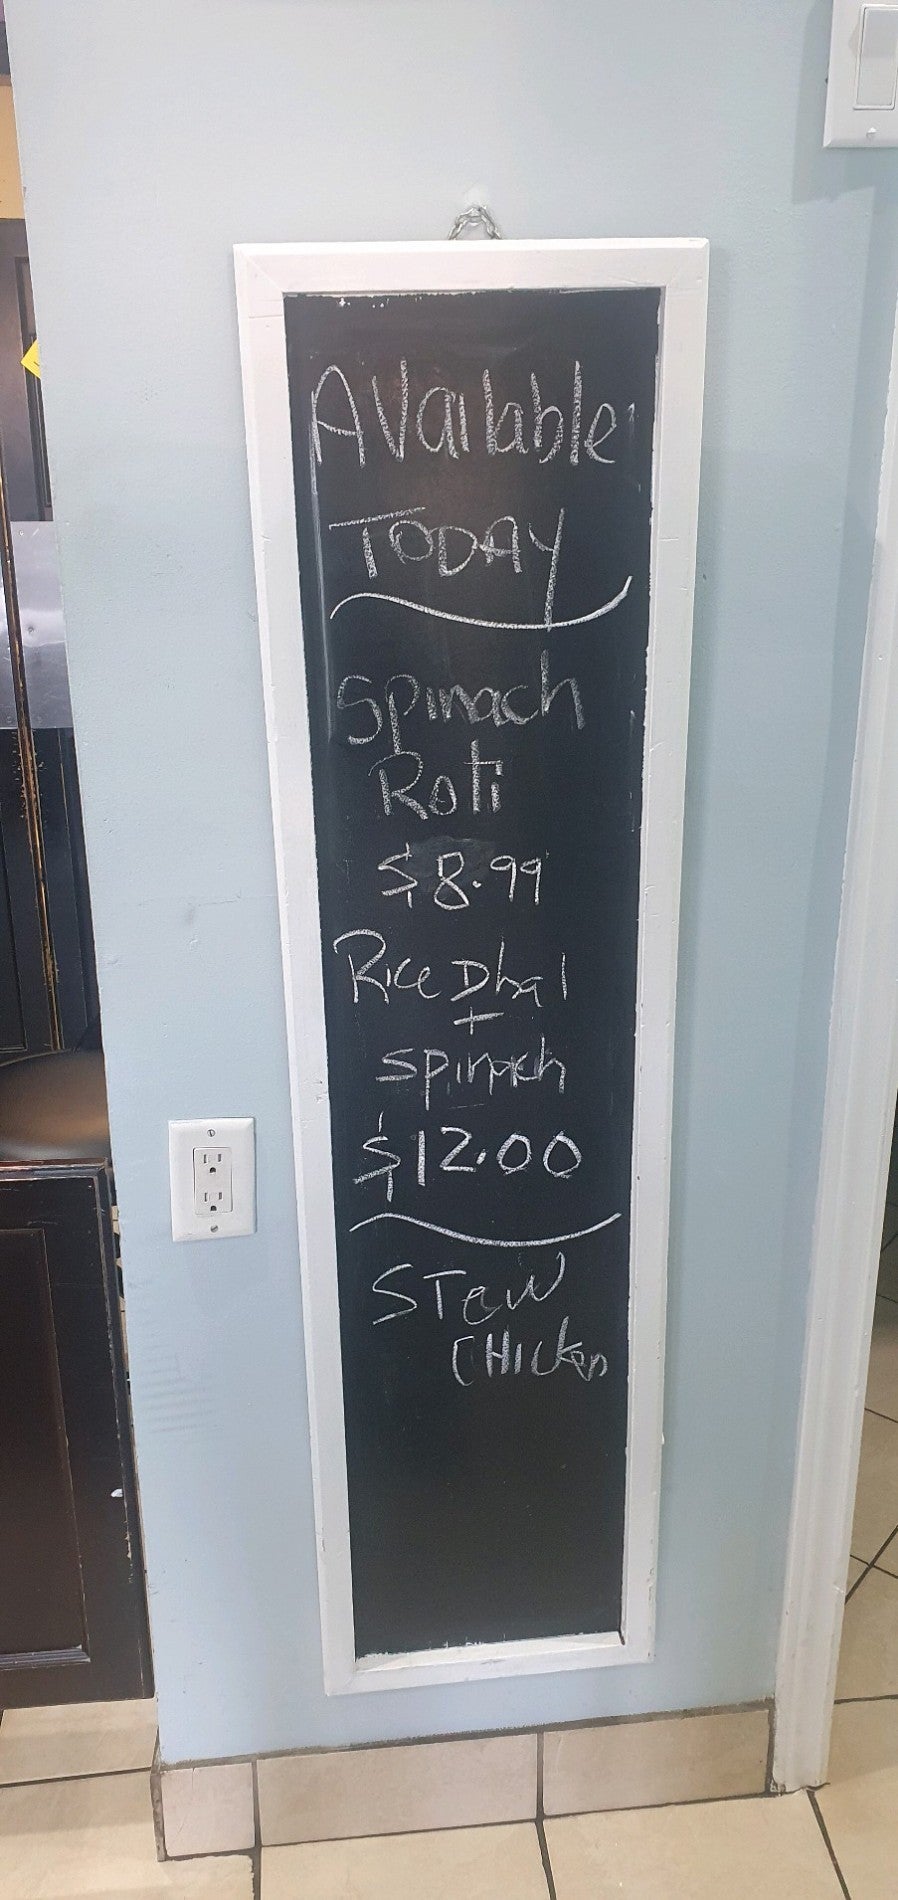 Available
TODAY
Spinach
Roti
$8.99
Rice Dhal
+
Spinach
$12.00
STew
CHICken